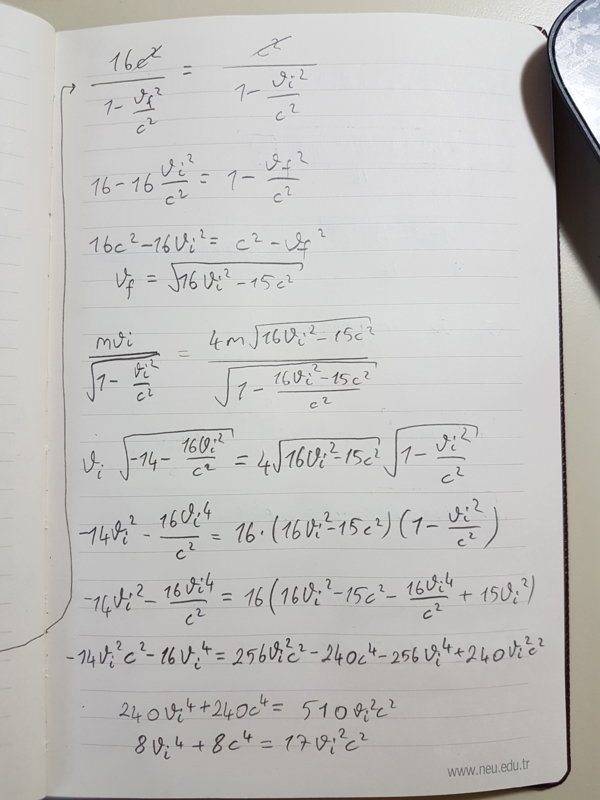 16c²/(1 - ϑf²/c²) = c²/(1 - ϑi²/c²)
16 - 16 ϑi²/c² = 1 - ϑf²/c²
16c² - 16ϑi² = c² - ϑf²
ϑf = √(16ϑi² - 15c²)
mϑi/√(1 - ϑi²/c²) = 4m√(16ϑi² - 15c²)/√(1 - (16ϑi² - 15c²)/c²)
ϑi √(-14 - 16ϑi²/c²) = 4√(16ϑi² - 15c²) √(1 - ϑi²/c²)
-14ϑi² - 16ϑi⁴/c² = 16·(16ϑi² - 15c²)(1 - ϑi²/c²)
-14ϑi² - 16ϑi⁴/c² = 16(16ϑi² - 15c² - 16ϑi⁴/c² + 15ϑi²)
-14ϑi²c² - 16ϑi⁴ = 256ϑi²c² - 240c⁴ - 256ϑi⁴ + 240ϑi²c²
240ϑi⁴ + 240c⁴ = 510ϑi²c²
8ϑi⁴ + 8c⁴ = 17ϑi²c²
www.neu.edu.tr